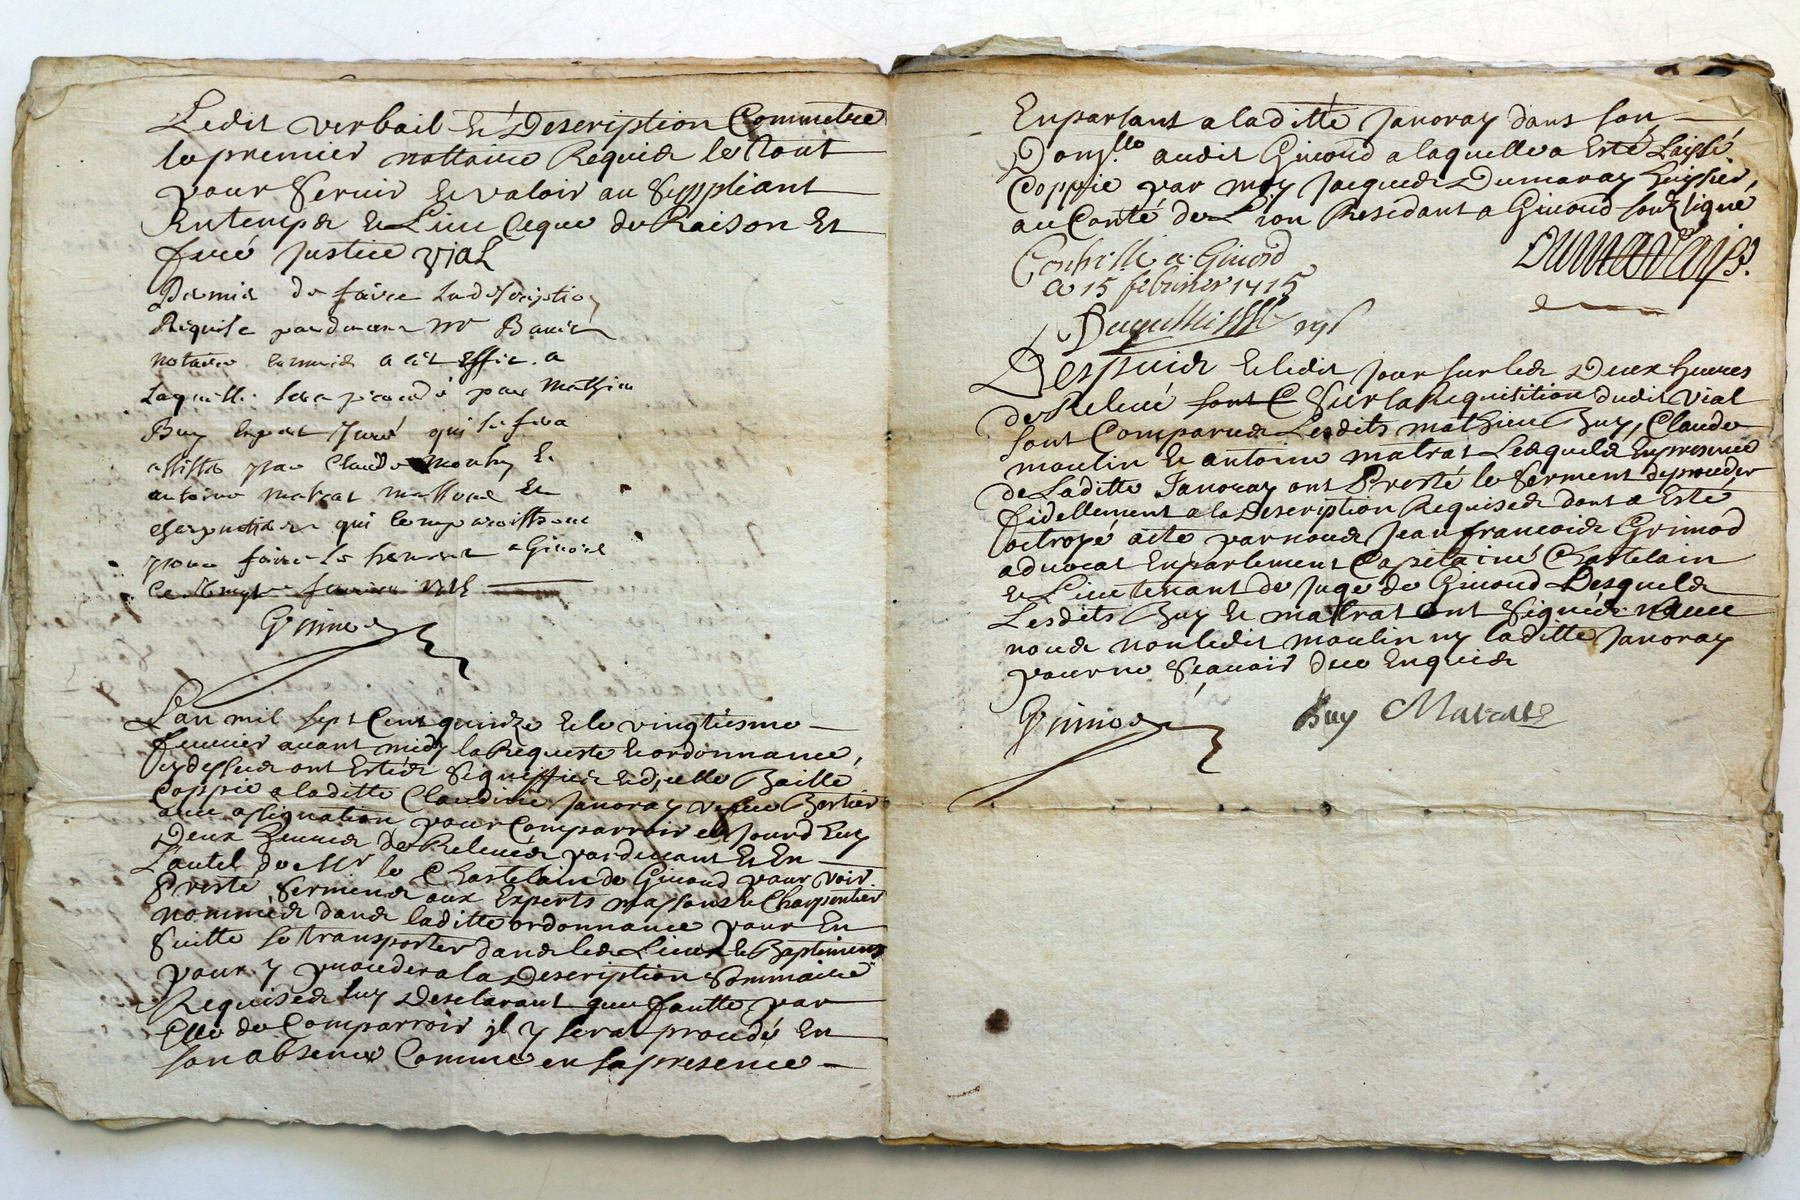 Ledit verbail et Description Commettre
le premier nottaire Requis le Tout
pour servir et valoir au suppliant
En temps et Lieu Ceque de Raison Et
feré justice Vial
Permis de faire la description
Requise pardevant Mr
notaire commis a cet effet a
Laquelle sera procedé par Mathieu
Buy Expert juré qui se fera
assister par Claude Moulin et
antoine matrat massons Et
charpentiers qui comparoistront
pour faire le serment a Givord
ce vingt fevrier 1715
Grimod
L'an mil sept Cent quinze et le vingtiesme
fevrier avant midy la Requeste et ordonnance,
cy dessus ont Estés signiffiés et d'icelle Baillé
Coppie a laditte Claudine Janoray vefve Bertier
avec assignation pour Comparroir ce jourd'huy
Deux heures de Relevés pardevant Et En
L'autel de Mr le Chastelain de Givord pour voir
Presté serment aux Experts massons et Charpentier
nommés dans laditte ordonnance pour En
suitte se transporter dans les Lieux et Baptiments
pour y proceder a la Description sommaire
Requises luy Desclarant que fautte par
Elle de Comparroir jl y serat procedé En
son absence Comme en sa presence
En parlant a laditte Janoray dans son
Domlle audit Givord a laquelle a Esté Laissé
Coppie par moy Jacques Dumaray huissier,
au Conté de Lion Residant a Givord soubsigné
Dumaray
Controllé a Givord
a 15 febvrier 1715
Despuis et ledit jour sur les Deux heures
de Relevé sont C sur la Requisition dudit Vial
sont Comparus Lesdits mathieu Buy, Claude
moulin et antoine matrat Lesquels En presence
de Laditte Janoray ont Presté le serment de proceder
fidellement a la Description Requises dont a Esté
octroyé acte par nous Jean francois Grimod
advocat En parlement Capitaine Chastelain
et Lieutenant de juge de Givord Desquels
Lesdits Buy et matrat ont signés avec
nous non ledit moulin ny laditte Janoray
pour ne sçavoir de ce Enquis
Grimod Buy Matrat